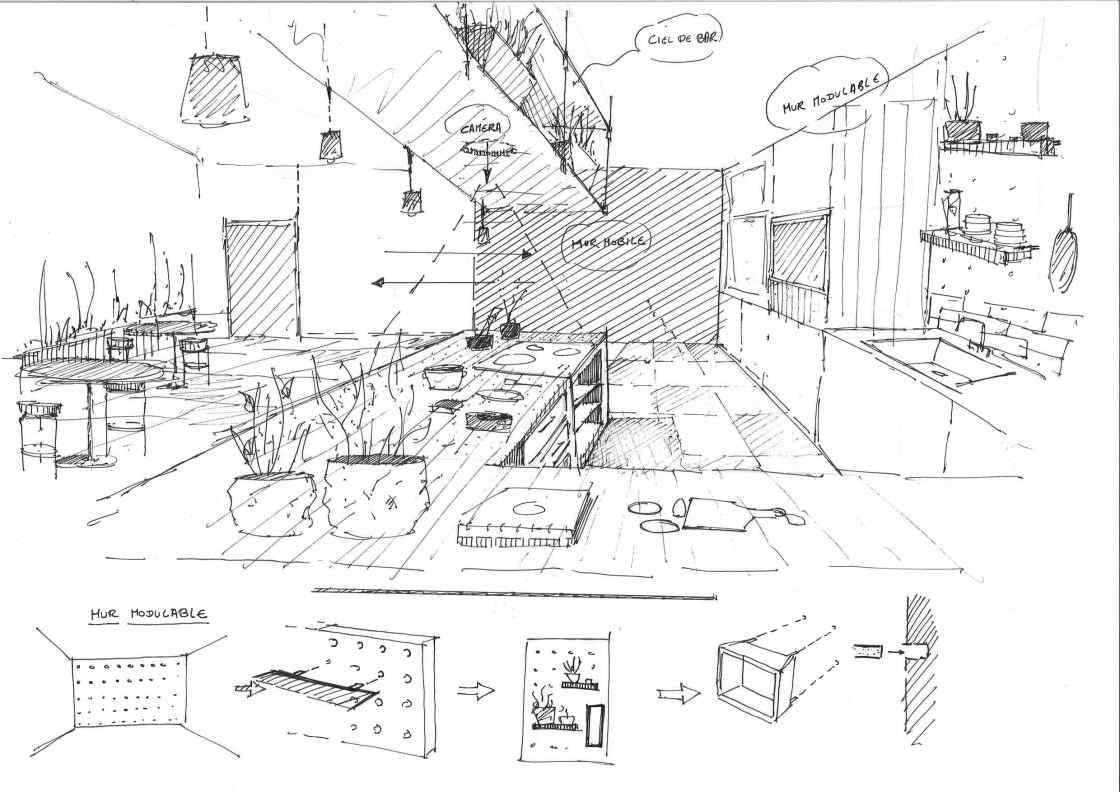 CIEL DE BAR
MUR MODULABLE
CAMÉRA
MUR MOBILE
MUR MODULABLE